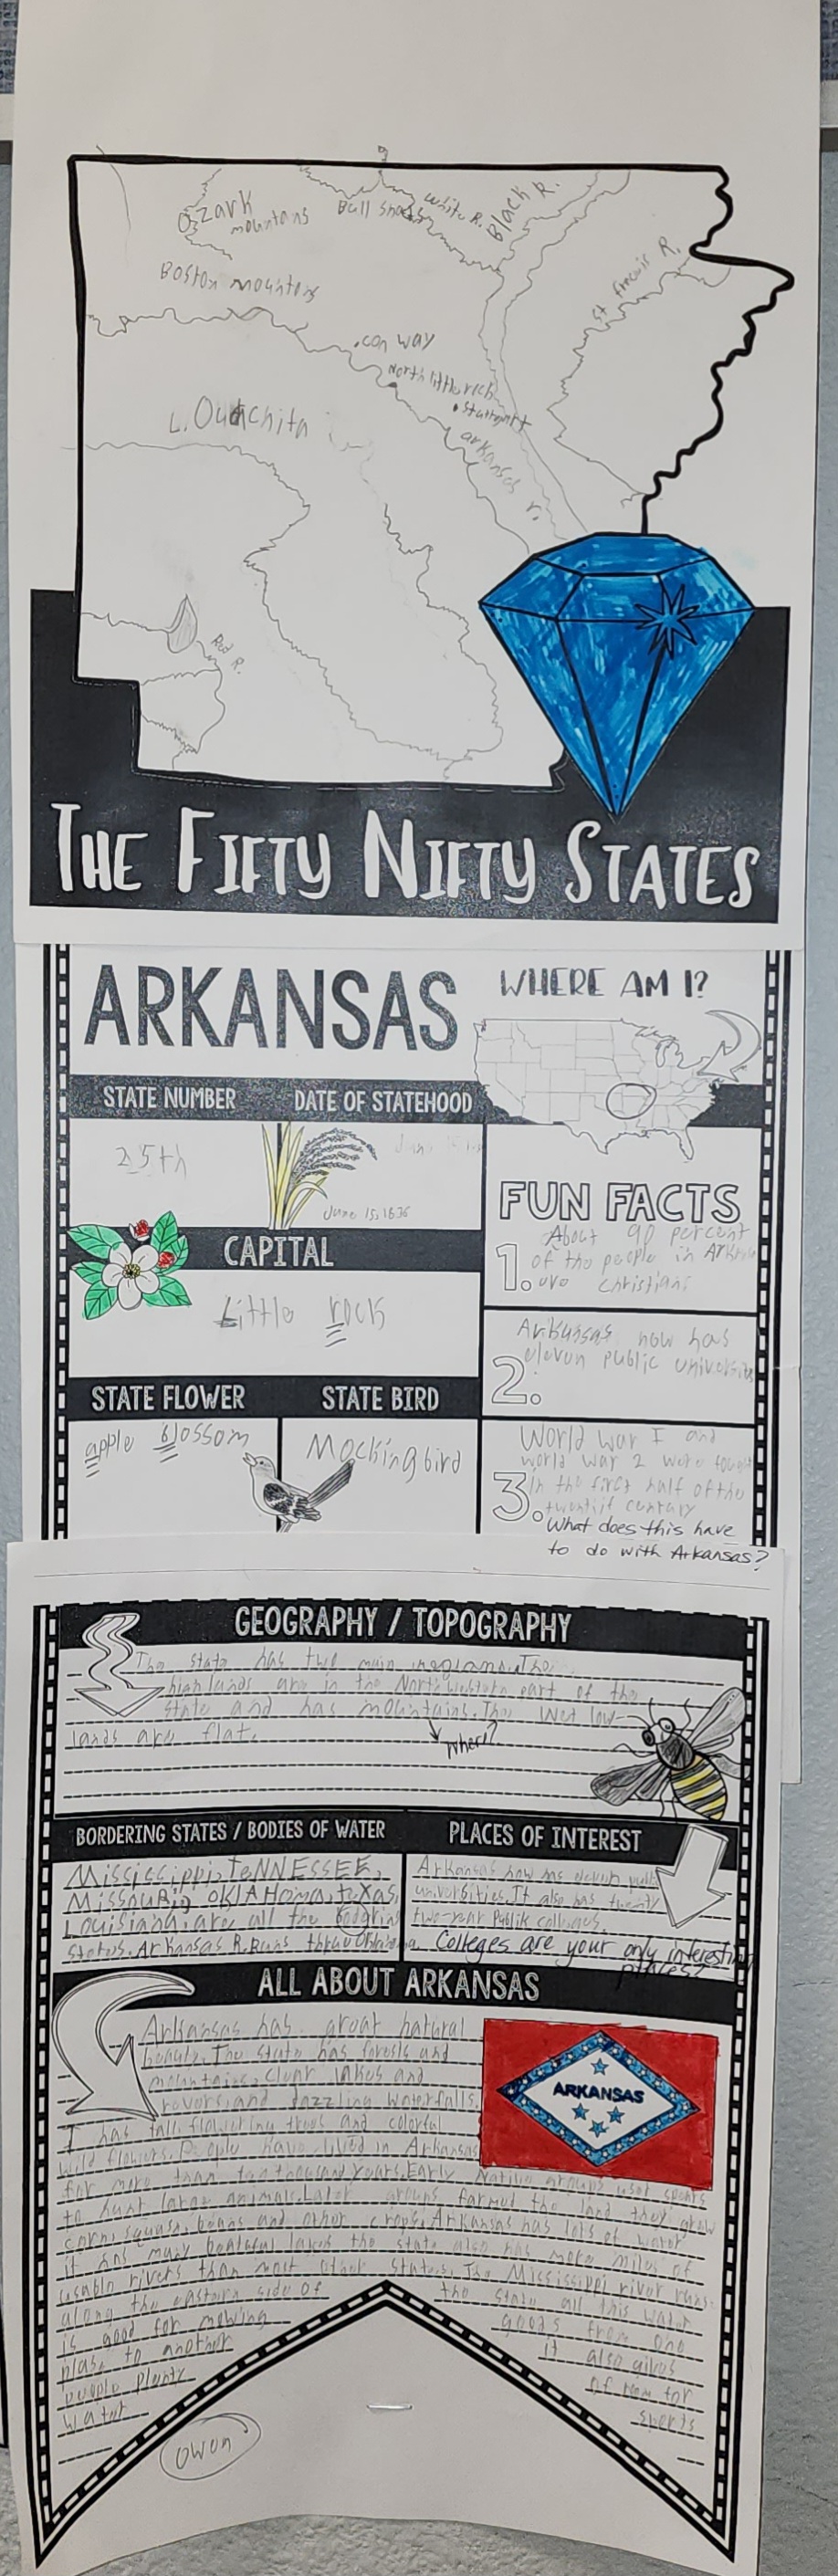 Ozark
mountains
Bull Shoals
White R.
Black R.
Boston mountons
St francis R.
.con way
North little rich
.Stuttgart
L. Ouachita
arkansas r.
Red R.
THE FIFTY NIFTY STATES
ARKANSAS
WHERE AM I?
STATE NUMBER
DATE OF STATEHOOD
25th
June 15, 1836
FUN FACTS
1. About 90 percent
of the people in Arkansas
are christians
CAPITAL
Little rock
2. Arkansas now has
eleven public universities
STATE FLOWER
STATE BIRD
apple Blossom
Mockingbird
3. World War I and
world war 2 were fought
in the first half of the
twentiif century
What does this have
to do with Arkansas?
GEOGRAPHY / TOPOGRAPHY
The state has two main regions. The
highlands are in the Northwestern part of the
state and has mountains. The wet low-
lands are flat.
Where?
BORDERING STATES / BODIES OF WATER
Mississippi, TENNESSEE,
MissouRi, OKlAHoma, teXas,
Louisiana, are all the
states. Arkansas R. Runs
PLACES OF INTEREST
Arkansas now has eleven publi
universities. It also has twenty
two-year Publik colleges.
Colleges are your only interesting
places?
ALL ABOUT ARKANSAS
Arkansas has great natural
beauty. The state has forests and
mountains, clear lakes and
revers, and dazzling waterfalls.
I has tall flowering trees and colorful
wild flowers. People have lived in Arkansas
for more than ten thousand years. Early Native groups used spears
to hunt large animals. Later groups farmed the land they grew
corn, squash, beans and other crops. Arkansas has lots of water
it has many beatiful lakes the state also has more miles of
usable rivers than most other states. The Mississippi river runs
along the eastern side of the state all this water
is good for moving goods from one
plase to another it also gives
people plenty of room for
water sports
ARKANSAS
Owen